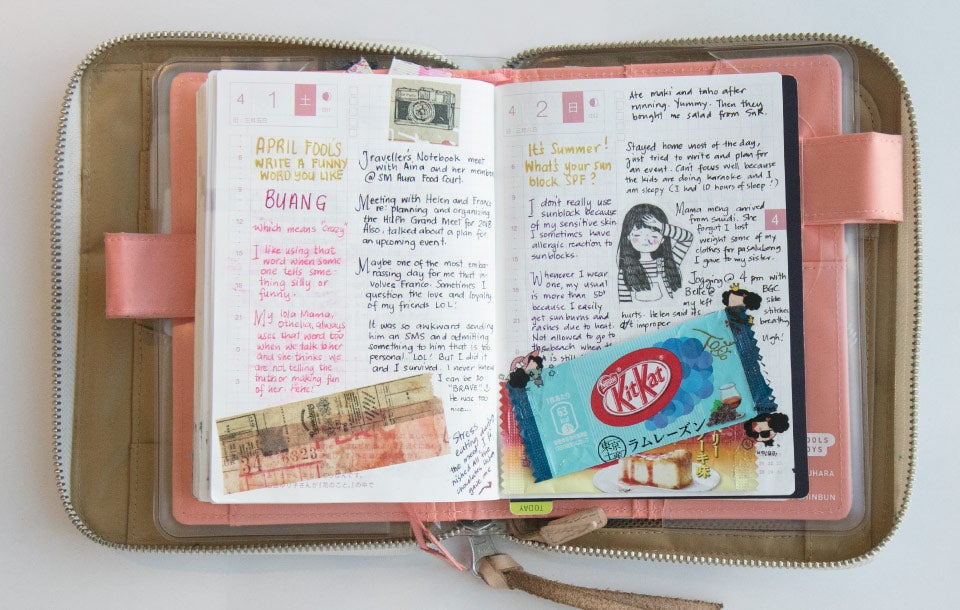 4 1 土
APRIL FOOLS
WRITE A FUNNY
WORD YOU LIKE
BUANG
"which means "crazy"
I like using that
word when some
one tells some-
thing silly or
funny.
My lola Mama,
Ophelia, always
uses that word too
when we talk to her
and she thinks we
are not telling the
truth or making fun
of her. Hehe!
Traveller's Notebook meet
with Aina and her
@ SM Aura Food Court.
Meeting with Helen and France
re: planning and organizing
the HtPh Grand Meet for 2018
Also, talked about a plan for
an upcoming event.
Maybe one of the most emba-
rassing day for me that in-
volves Franco. Sometimes I
question the love and loyalty
of my friends LOL!
It was so awkward sending
him an SMS and admitting
something to him that is too
personal. LOL! But I did it
and I survived. I never knew
I can be so
"BRAVE"
He was too
nice...
Stress
eating
the
chocolates
gave me
4 2 日
It's Summer!
What's your sun
block SPF?
I don't really use
sunblock because
of my sensitive skin
I sometimes have
allergic reaction to
sunblocks.
Whenever I wear
one, my usual
is more than 50
because I easily
get sunburns and
rashes due to heat.
Not allowed to go to
the beach when
is still
Ate maki and taho after
running. Yummy. Then they
bought me salad from SnR.
Stayed home most of the day,
Just tried to write and plan for
an event. Can't focus well because
the kids are doing karaoke and I
am sleepy (I had 10 hours of sleep!)
Mama meng arrived
from Saudi. She
forgot I lost
weight some of my
clothes for pasalubong
I gave to my sister.
4
Jogging @ 4 pm with
Belle @ BGC
my left side
hurts. Helen said it's stitches
improper breathing
Ugh!
Nestle
KitKat
63
東京土産
ラムレーズン
TODAY